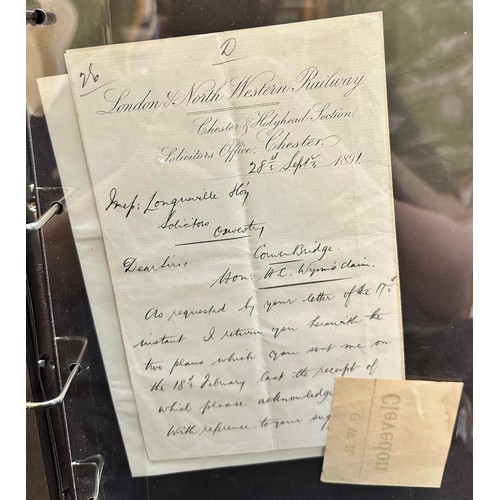 D
26
London & North Western Railway
Chester & Holyhead Section.
Solicitors Office, Chester,
28th Septr 1891.
Longueville & Co
Solicitors Oswestry
Dear Sirs, Corwen Bridge.
Hon: H.C. Wynn's claim.
As requested by your letter of the 17th
instant I return you herewith the
two plans which you sent me on
the 18th February last the receipt of
which please acknowledge
With reference to your